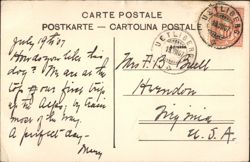 CARTE POSTALE
POSTKARTE – CARTOLINA POSTALE
UETLIBERG
July 19th 07
How do you like this
dog? We are at the
top of our first trip
at the Alps, by train
most of the way.
A perfect day –
Mary
Mrs F. B. Buell
Herndon
Virginia
U.S.A.